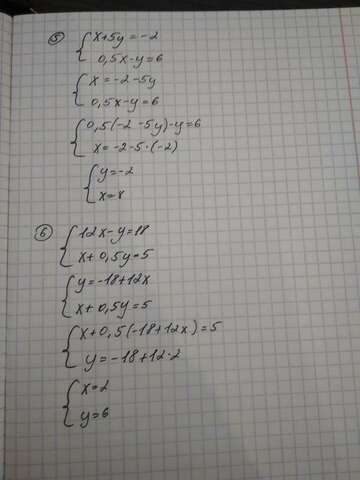 5 x+5y=-2
0,5x-y=6
x=-2-5y
0,5x-y=6
0,5(-2-5y)-y=6
x=-2-5·(-2)
y=-2
6 12x-y=18
x+0,5y=5
y=-18+12x
x+0,5y=5
x+0,5(-18+12x)=5
y=-18+12·2
x=2
y=6